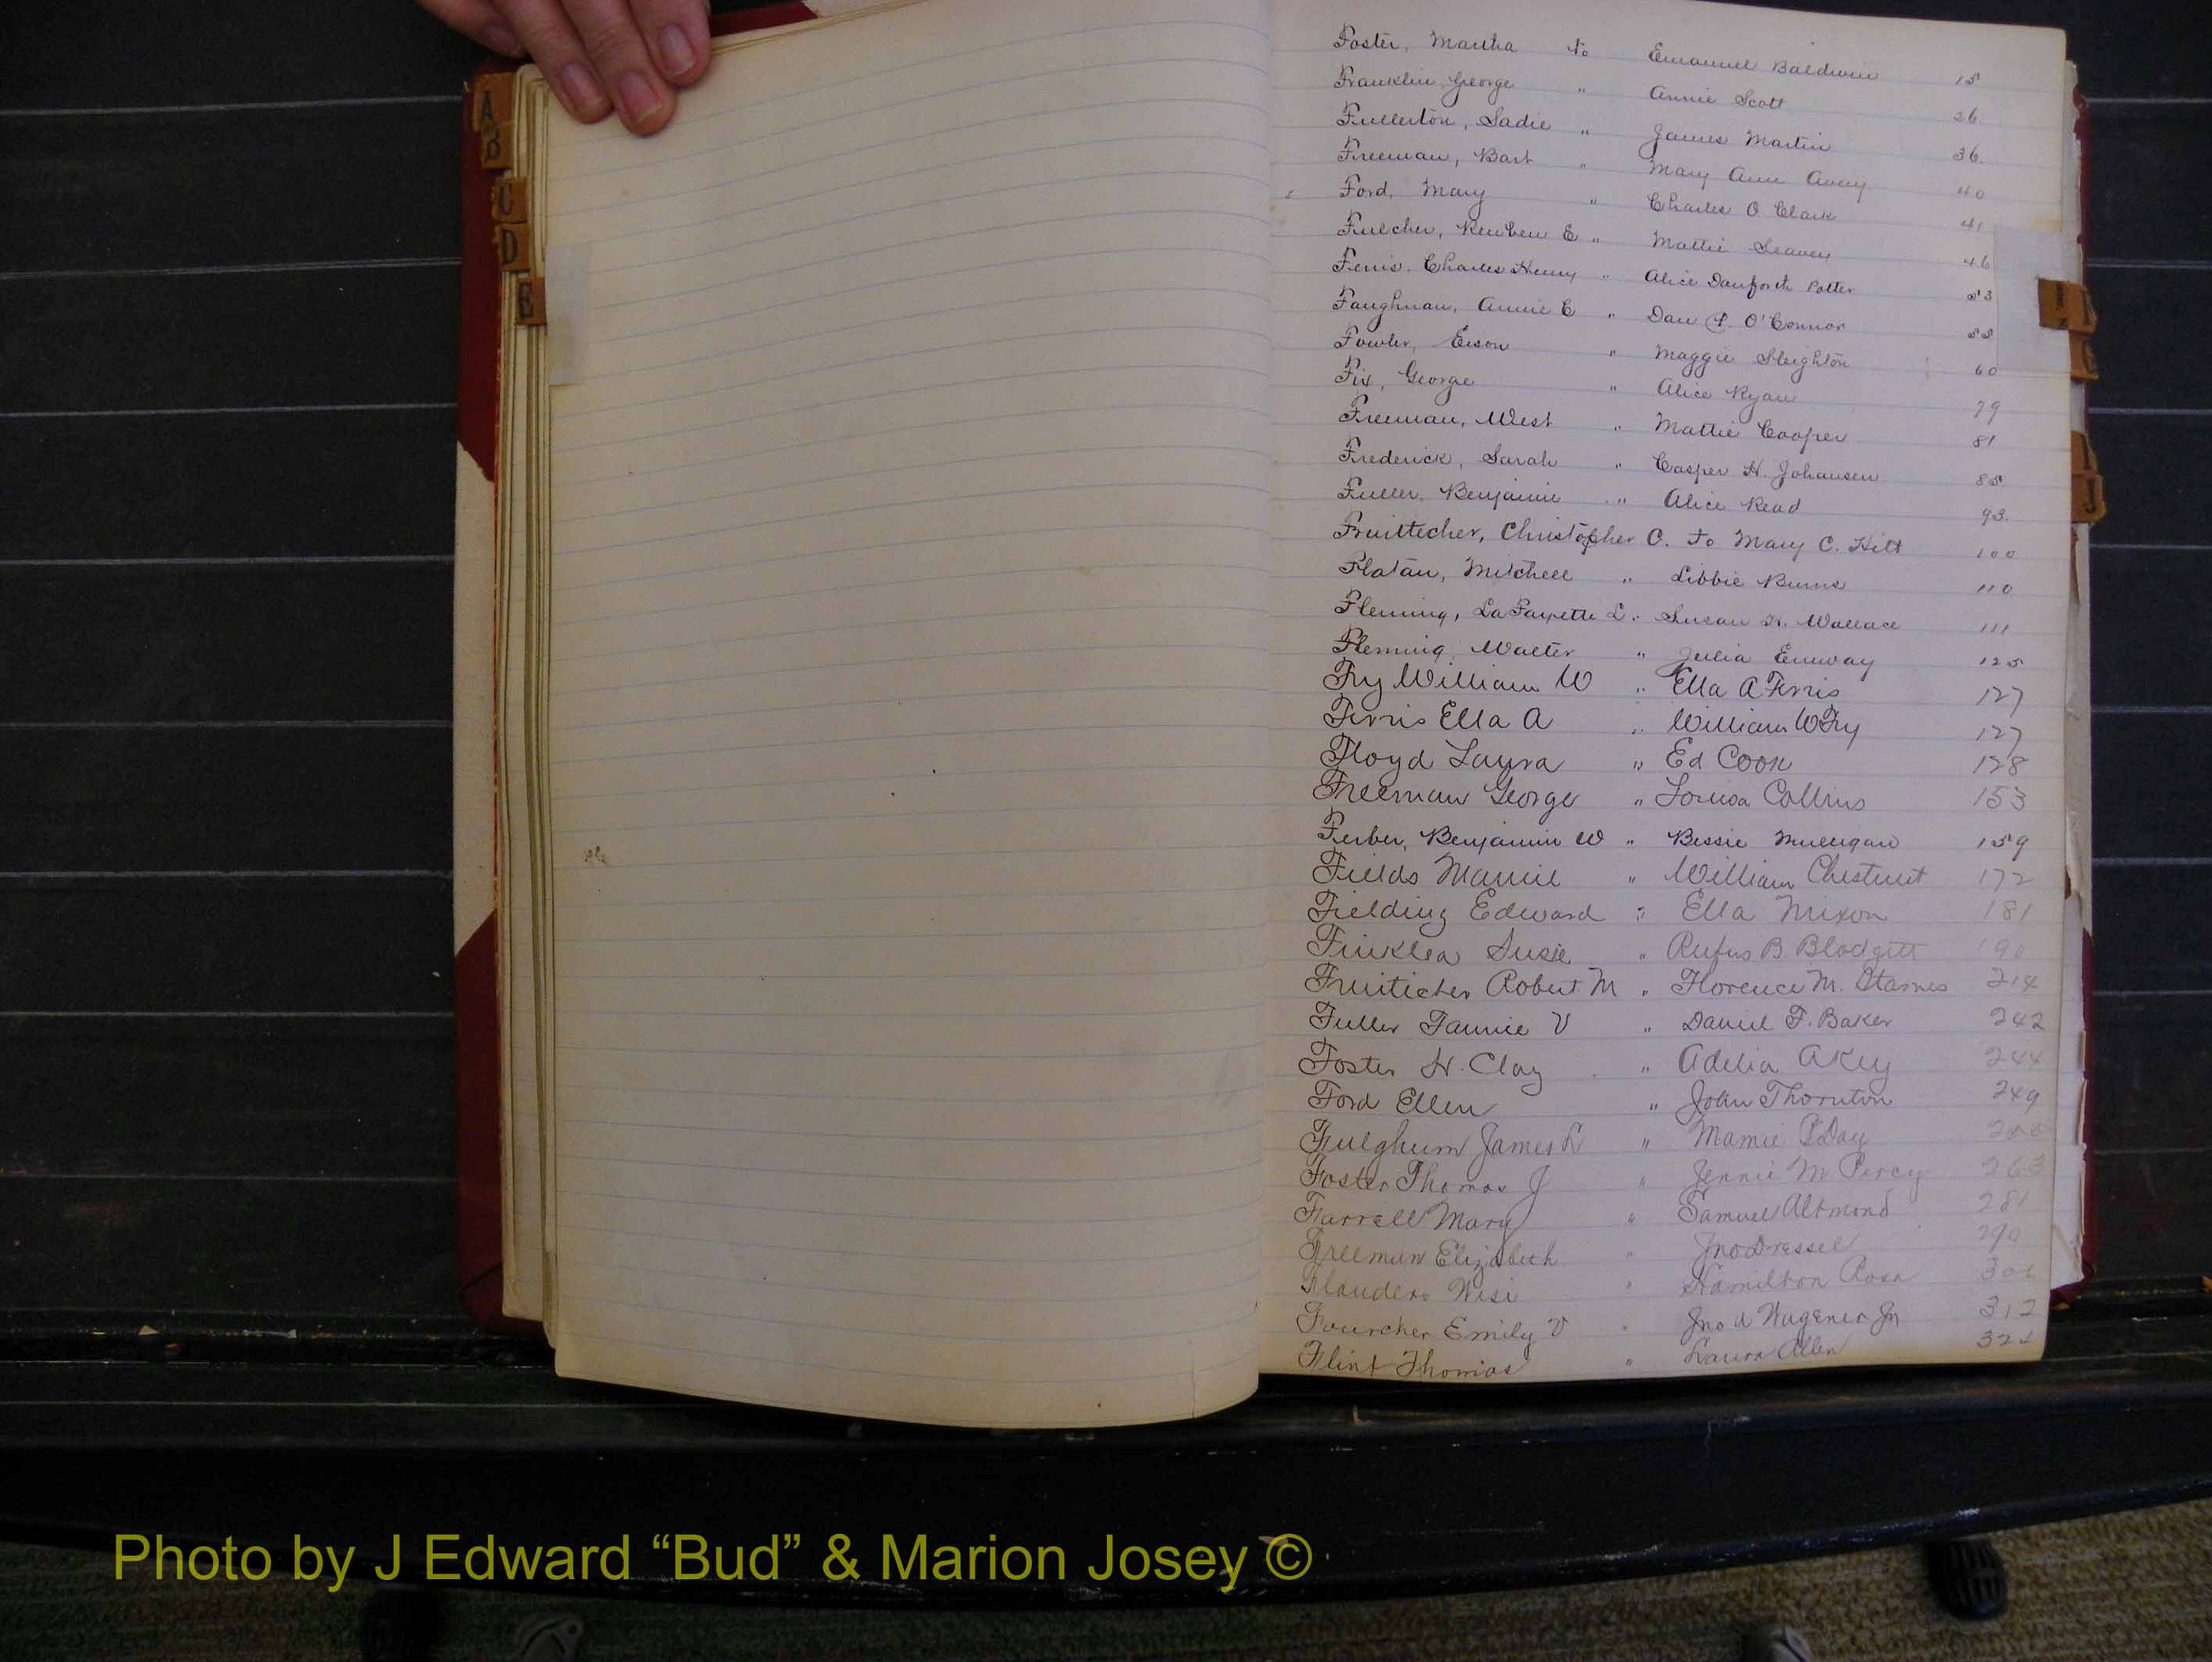 A
B
C
D
E
Foster, Martha to Emanuel Baldwin 15
Franklin, George " Annie Scott 26
Fullerton, Sadie " James Martin 36
Freeman, Bart " Mary Ann Avery 40
Ford, Mary " Charles O Clark 41
Fulcher, Reuben E " Mattie Seavey 46
Ferris, Charles Henry " Alice Danforth Potter 53
Faughnan, Annie C " Dan P. O'Connor 55
Fowler, " Maggie Sleighton 60
Fix, George " Alice Ryan 79
Freeman, West " Mattie Cooper 81
Frederick, Sarah " Casper H. Johansen 85
Fuller, Benjamin " Alice Read 93
Fruittecher, Christopher C. to Mary C. Hilt 100
Flatau, Mitchell " Libbie Burns 110
Fleming, LaFayette L. " Susan H. Wallace 111
Fleming, Walter " Julia 125
Fry William W " Ella A Ferris 127
Ferris Ella A " William W Fry 127
Floyd Laura " Ed Cook 128
Freeman George " Louisa Collins 153
Ferber, Benjamin W " Bessie Mulligan 159
Fields Mamie " William Chestnut 172
Fielding Edward " Ella Nixon 181
Finklea Susie " Rufus B. Blodgett 190
Fruiticher Robert M " Florence M. Starnes 214
Fuller Fannie V " Daniel F. Baker 242
Foster H. Clay " Adelia Akey 244
Ford Ellen " John Thornton 249
Fulghum James L " Mamie P Day
Foster Thomas J " Jennie M Percy 263
Farrell Mary " Samuel Altmond 281
Freeman Elizabeth " Jno Dressel 290
Flanders " Hamilton Rosa
Fourcher Emily V " Jno A Wagener Jr 312
Flint Thomas " Laura Allen
I
J
Photo by J Edward “Bud” & Marion Josey ©